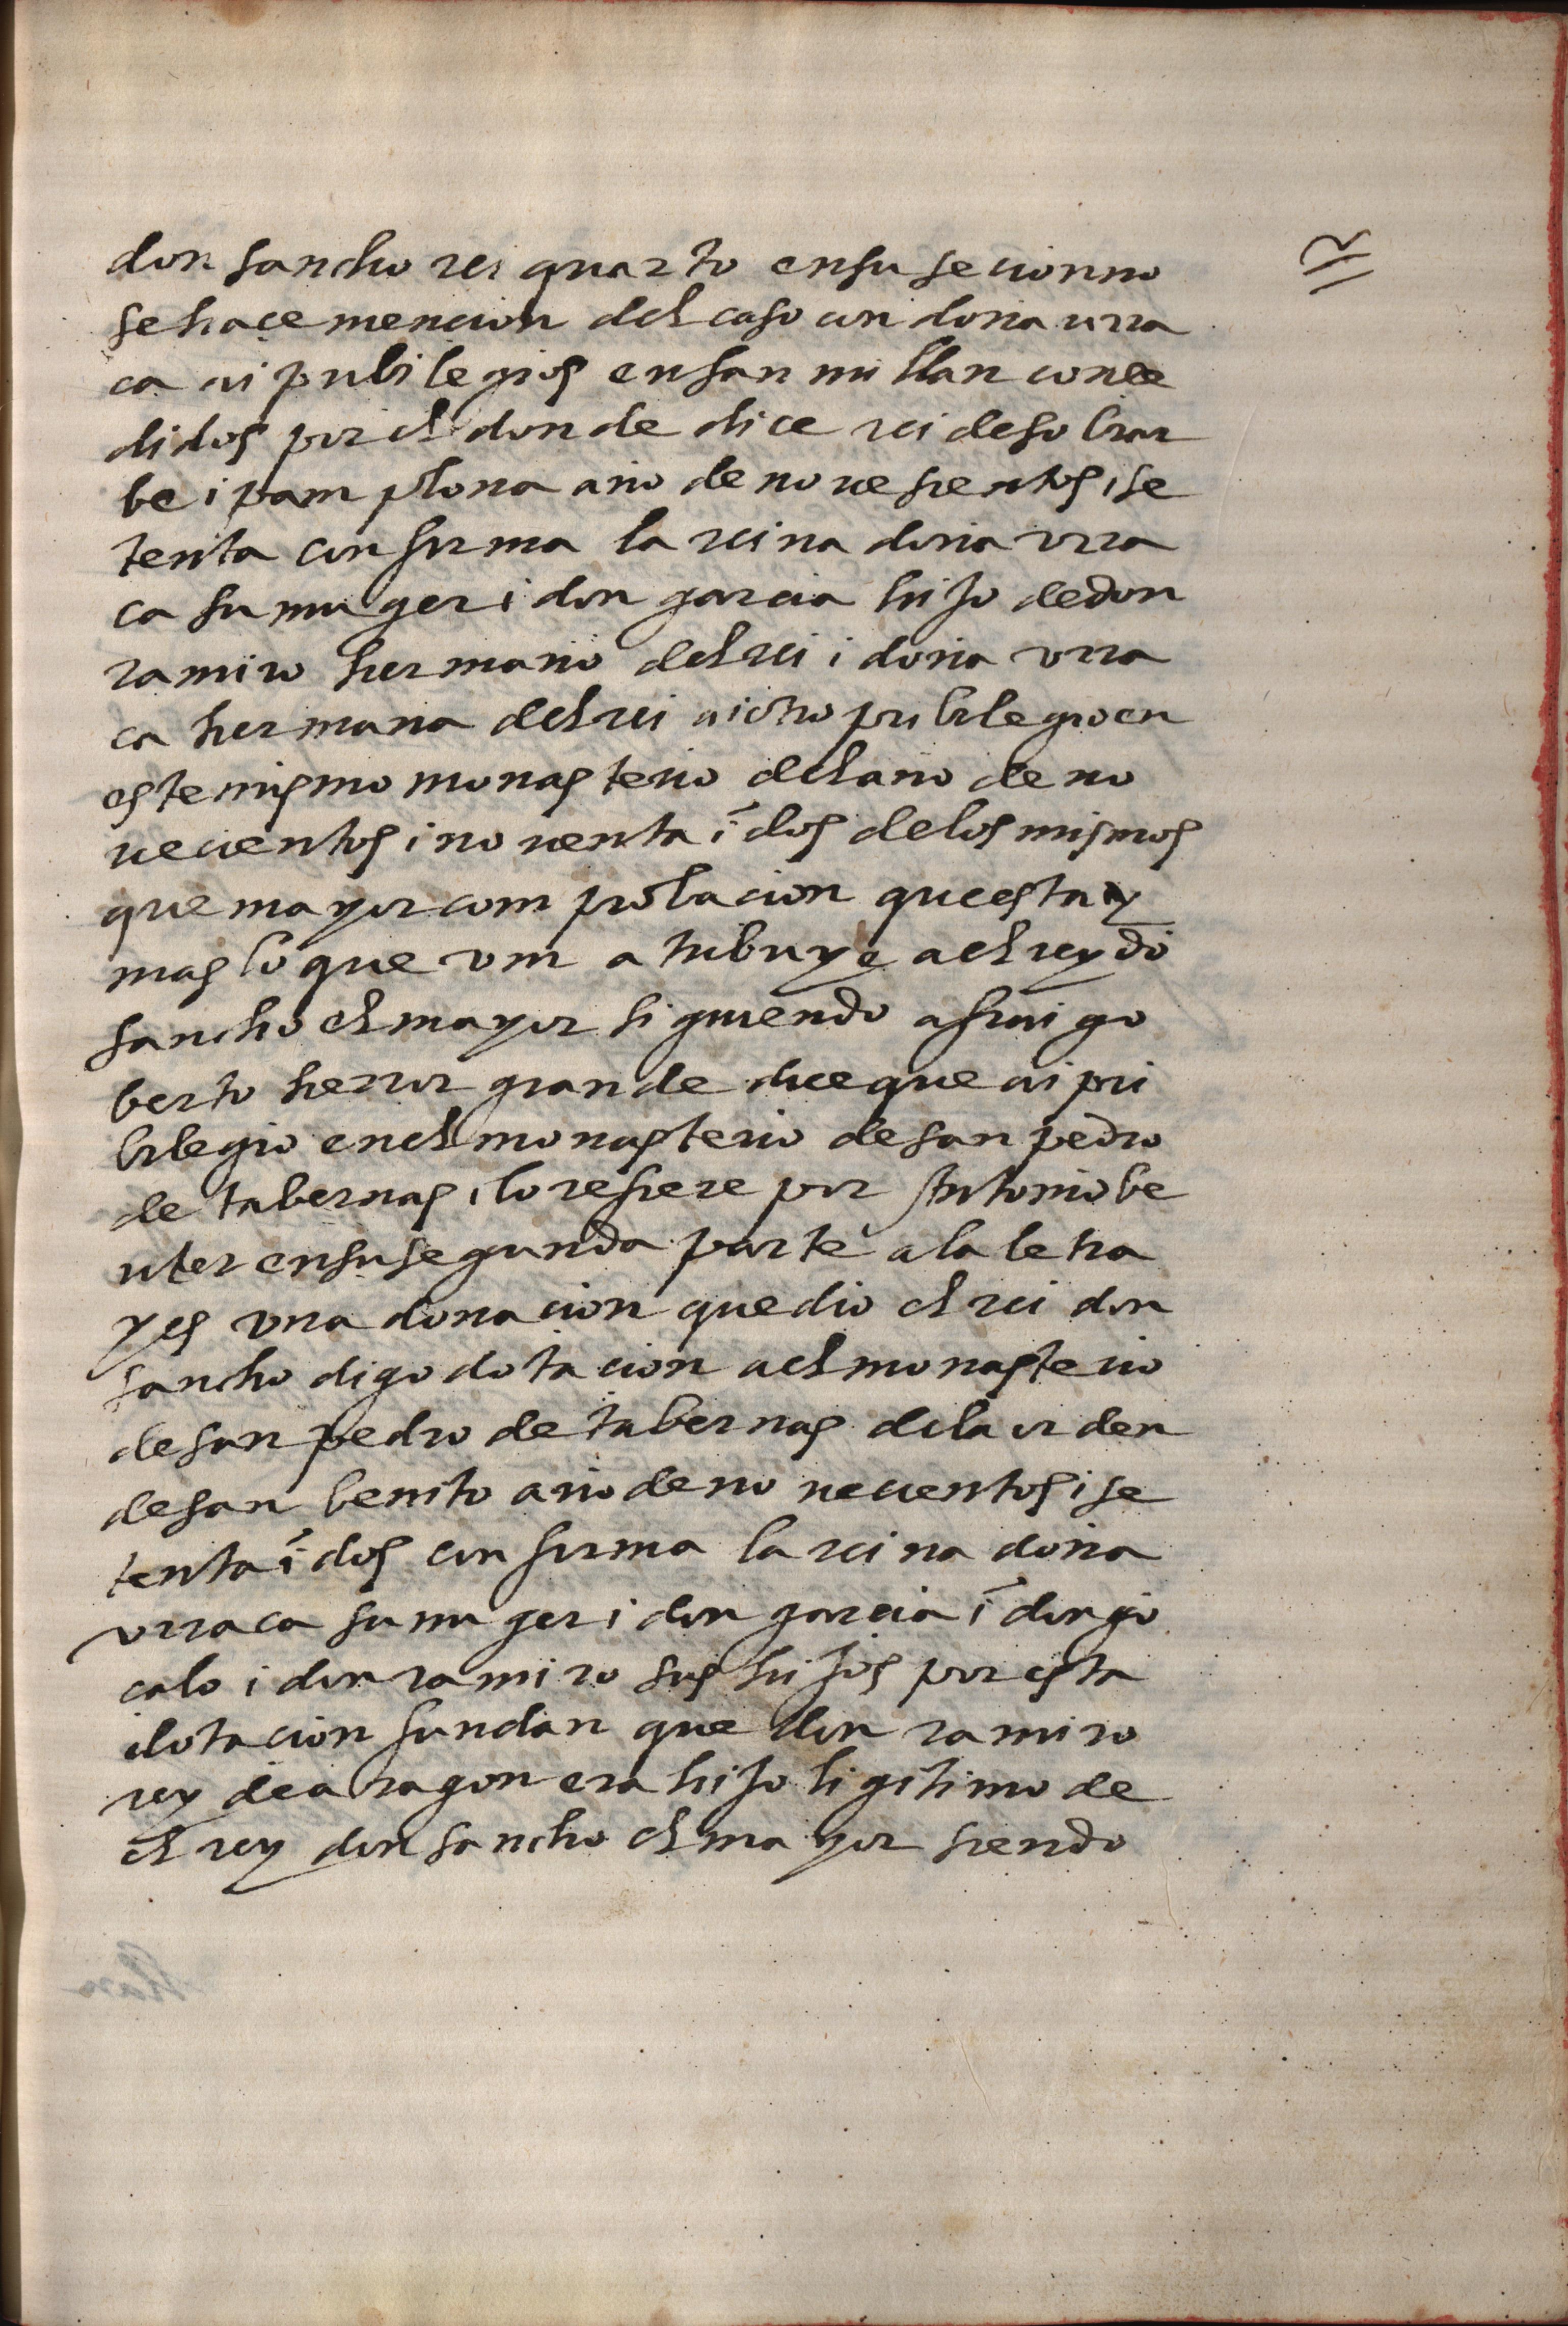 don sancho rei quarto en su secion no
se hace mencion del caso con doña urra
ca ai pribilegios en san millan conce
didos por el donde dice rei de sobrar
be i pamplona año de novesientos i se
tenta confirma la reina doña vrra
ca su muger i don garcia hijo de don
ramiro hermano del rei i doña vrra
ca hermana del rei ai otro pribilegio en
este mismo monasterio del año de no
uecientos i nouenta i dos de los mismos
que mayor comprobacion que esta y
mas lo que vm atribuye a el rey dō
sancho el mayor siguiendo a
berto herror grande dice que ai pri
bilegio en el monasterio de san pedro
de tabernas i lo refiere por Antonio be
uter en su segunda parte a la letra
y es vna donacion que dio el rei don
sancho digo dotacion a el monasterio
de san pedro de tabernas de la orden
de san benito año de nouecientos i se
tenta i dos confirma la reina doña
vrraca su muger i don garcia i don gō
calo i don ramiro sus hijos por esta
dotacion fundan que don ramiro
rey de aragon era hijo ligitimo de
el rey don sancho el mayor siendo